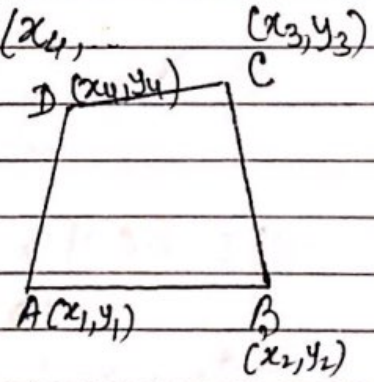 (x₄,... (x₃,y₃)
D (x₄,y₄) C
A(x₁,y₁) B
(x₂,y₂)